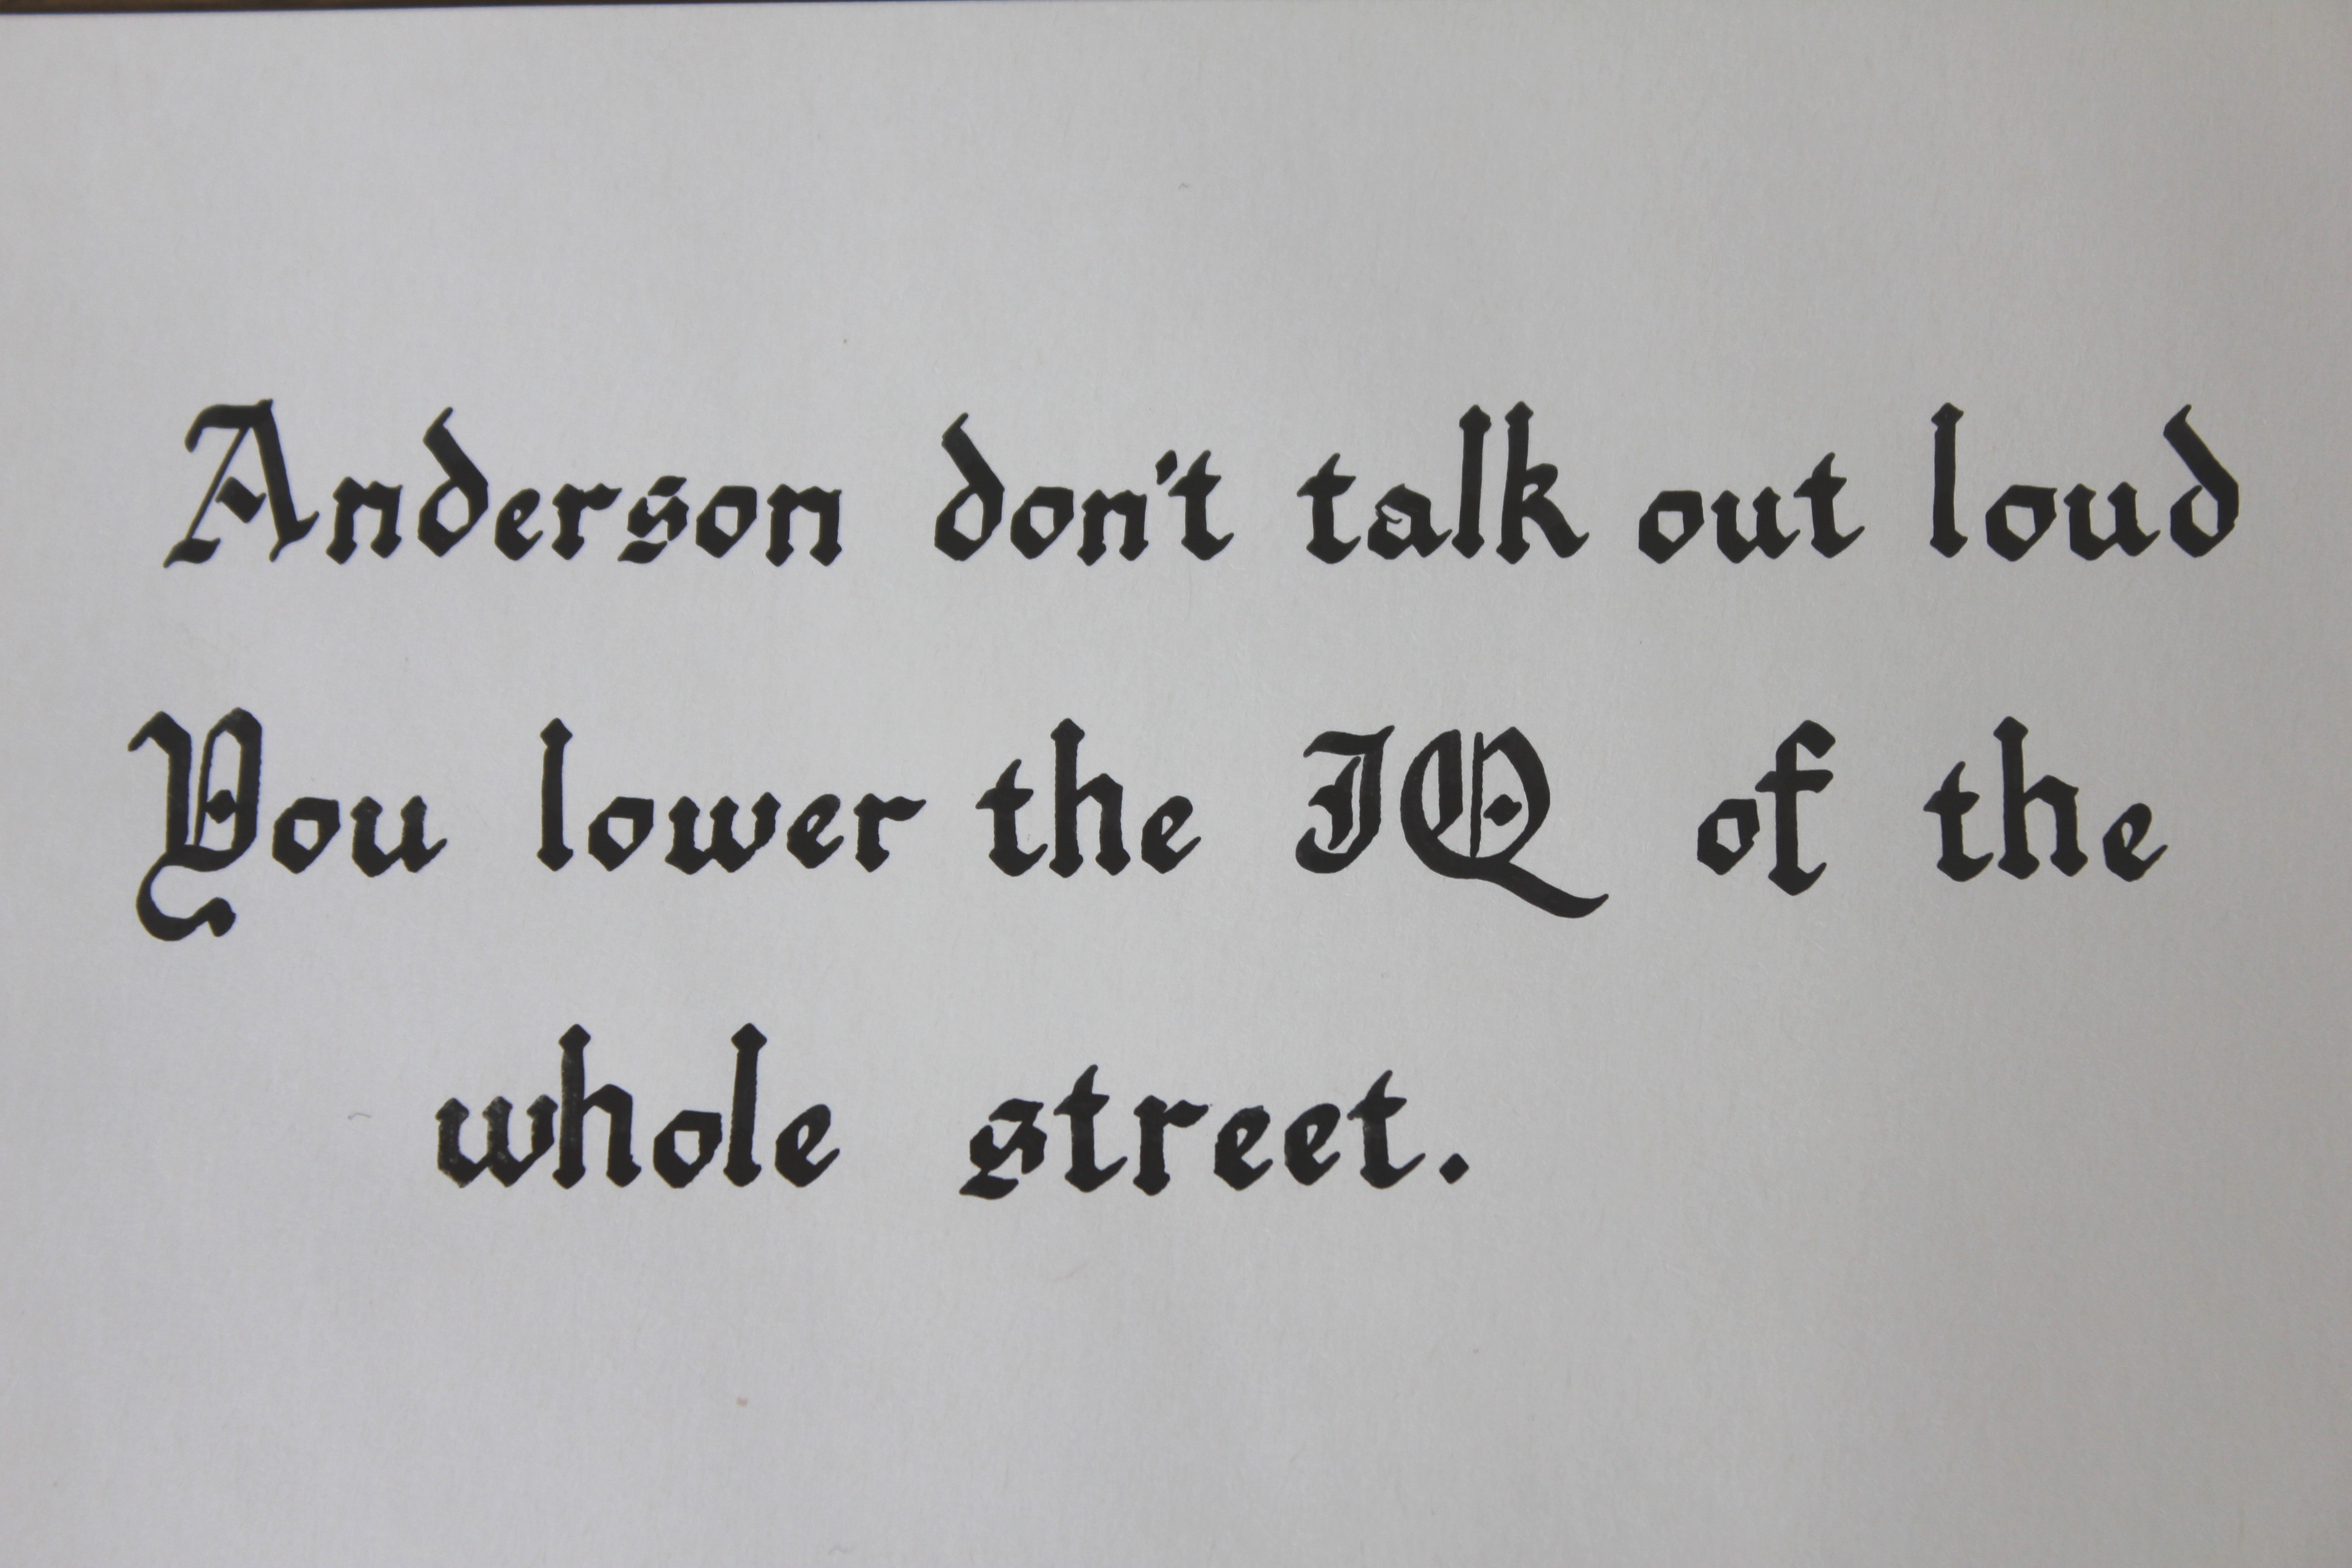 Anderson don't talk out loud
You lower the IQ of the
whole street.